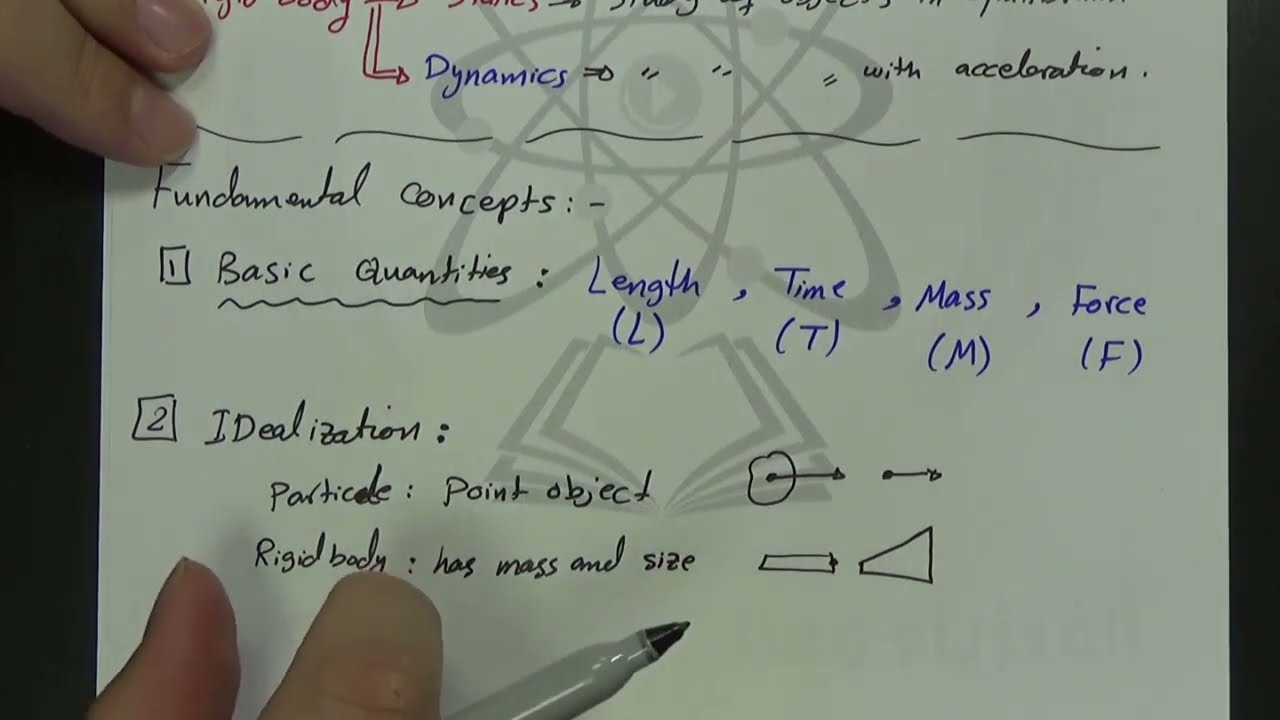 Rigid body ⇒ Statics ⇒ Study of objects in equilibrium
Dynamics ⇒ " " " with acceleration.
Fundamental Concepts: -
1 Basic Quantities : Length , Time , Mass , Force
(L) (T) (M) (F)
2 IDealization :
Particle : Point object
Rigid body : has mass and size